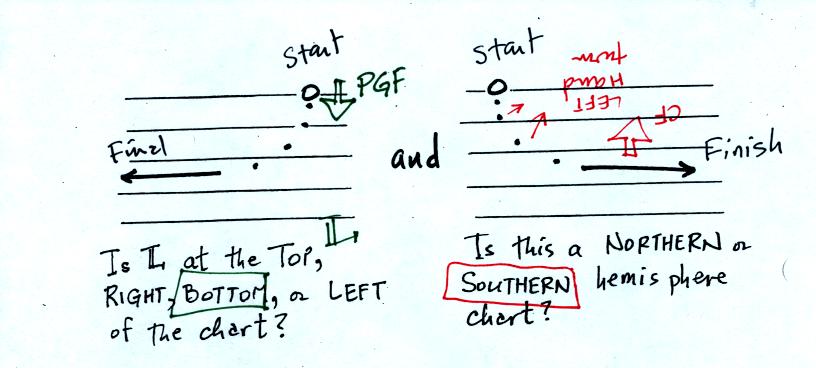 Start
PGF
Final
L
Is L at the Top,
RIGHT, BOTTOM, or LEFT
of the chart?
and
Start
LEFT
Hand
turn
CF
Finish
Is this a NORTHERN or
SOUTHERN hemisphere
chart?